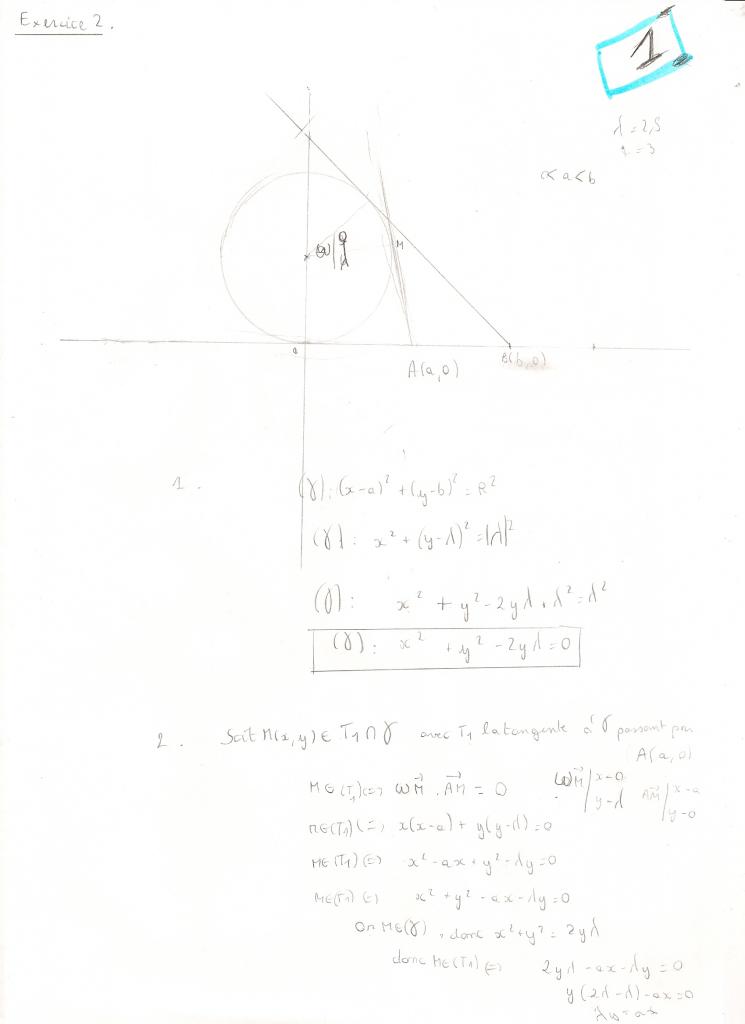 Exercice 2.
1
λ = 2,5
r = 3
0<a<b
ω | 0
λ
M
A(a,0)
B(b,0)
1.
(γ): (x-a)² + (y-b)² = R²
(γ): x² + (y-λ)² = |λ|²
(γ): x² + y² - 2yλ + λ² = λ²
(γ): x² + y² - 2yλ = 0
2. Soit M(x,y) ∈ T₁ ∩ γ avec T₁ la tangente à γ passant par
A(a,0)
M∈(T₁) ⇔ ωM⃗ . AM⃗ = 0
ωM⃗ | x-0
y-λ
AM⃗ | x-a
y-0
M∈(T₁) ⇔ x(x-a) + y(y-λ) = 0
M∈(T₁) ⇔ x² - ax + y² - λy = 0
M∈(T₁) ⇔ x² + y² - ax - λy = 0
Or M∈(γ), donc x²+y² = 2yλ
donc M∈(T₁) ⇔ 2yλ - ax - λy = 0
y(2λ-λ) - ax = 0
λy = ax